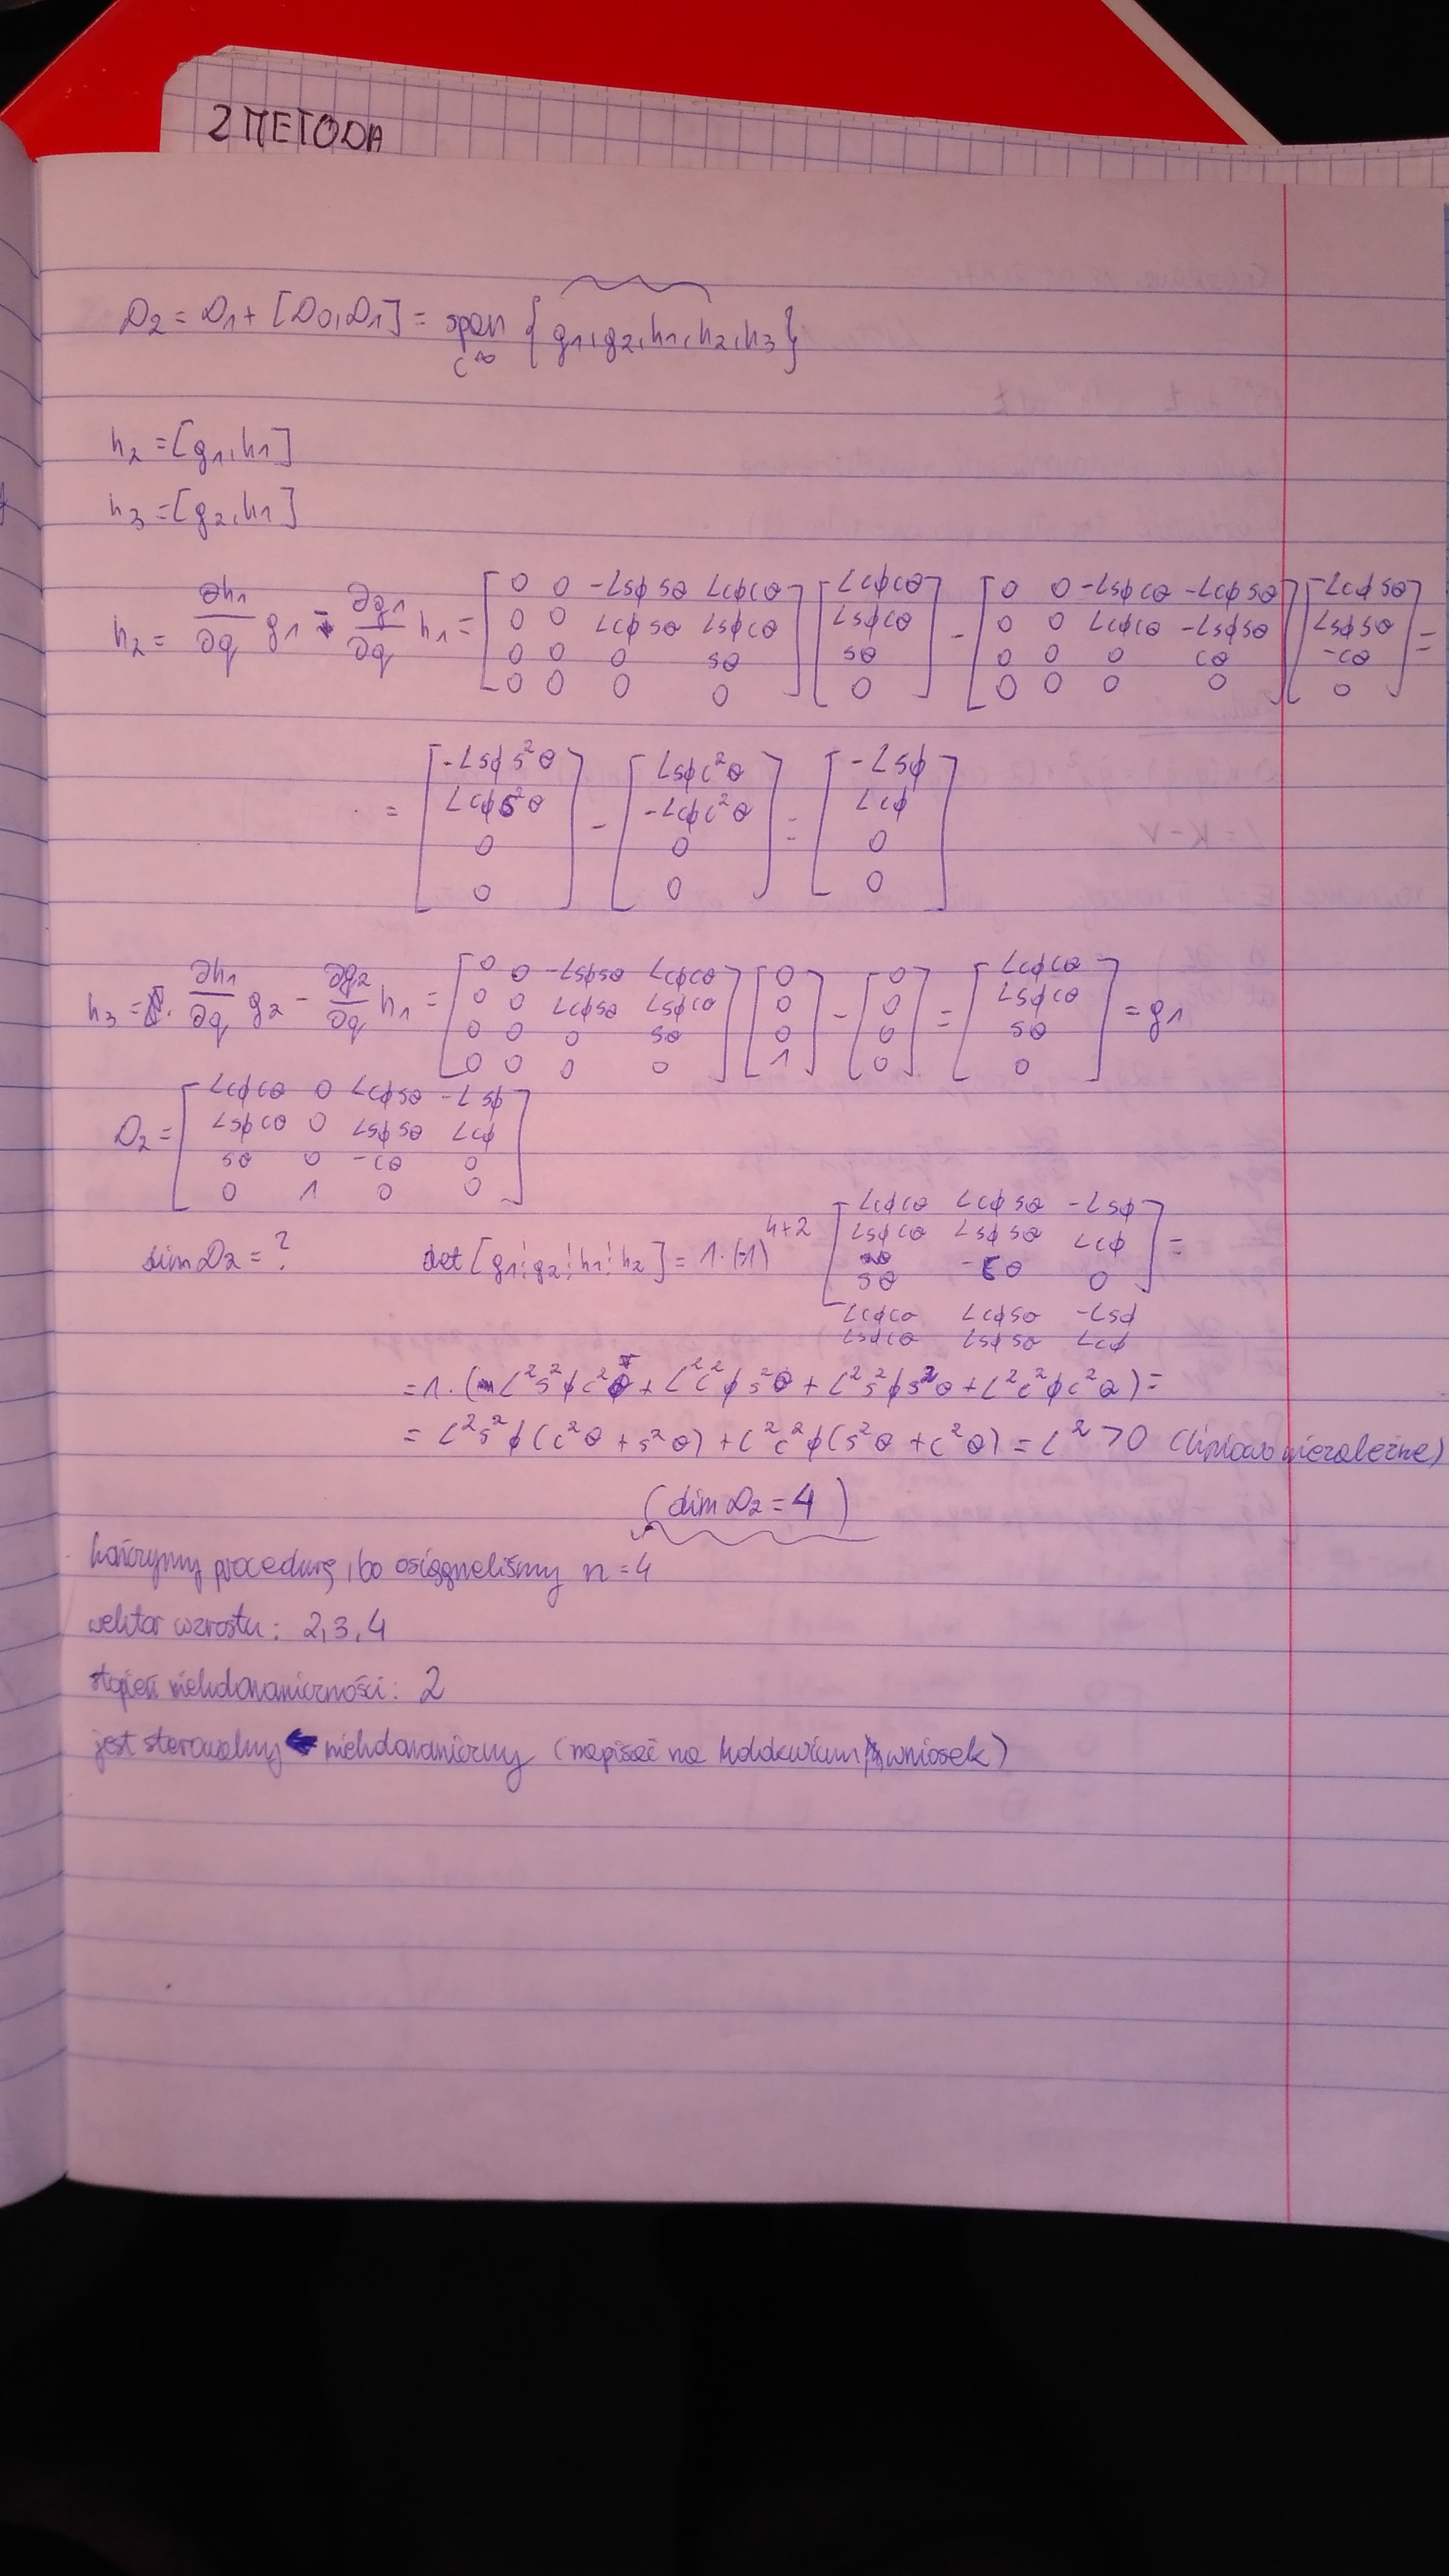 2 METODA
D₂ = D₁ + [D₀, D₁] = span C^∞ { g₁, g₂, h₁, h₂, h₃ }
h₂ = [g₁, h₁]
h₃ = [g₂, h₁]
h₂ = ∂h₁/∂q g₁ - ∂g₁/∂q h₁ = [0 0 -Lsϕsθ Lcϕcθ; 0 0 Lcϕsθ Lsϕcθ; 0 0 0 sθ; 0 0 0 0] [Lcϕcθ; Lsϕcθ; sθ; 0] - [0 0 -Lsϕcθ -Lcϕsθ; 0 0 Lcϕcθ -Lsϕsθ; 0 0 0 cθ; 0 0 0 0] [Lcϕsθ; Lsϕsθ; -cθ; 0] =
= [-Lsϕs²θ; Lcϕs²θ; 0; 0] - [Lsϕc²θ; -Lcϕc²θ; 0; 0] = [-Lsϕ; Lcϕ; 0; 0]
h₃ = ∂h₁/∂q g₂ - ∂g₂/∂q h₁ = [0 0 -Lsϕsθ Lcϕcθ; 0 0 Lcϕsθ Lsϕcθ; 0 0 0 sθ; 0 0 0 0] [0; 0; 0; 1] - [0; 0; 0; 0] = [Lcϕcθ; Lsϕcθ; sθ; 0] = g₁
D₂ = [Lcϕcθ 0 Lcϕsθ -Lsϕ; Lsϕcθ 0 Lsϕsθ Lcϕ; sθ 0 -cθ 0; 0 1 0 0]
dim D₂ = ? det [g₁ ¦ g₂ ¦ h₁ ¦ h₂] = 1·(-1)^4+2 [Lcϕcθ Lcϕsθ -Lsϕ; Lsϕcθ Lsϕsθ Lcϕ; sθ -cθ 0] =
Lcϕcθ Lcϕsθ -Lsϕ
Lsϕcθ Lsϕsθ Lcϕ
= 1·(L²s²ϕc²θ + L²c²ϕs²θ + L²s²ϕs²θ + L²c²ϕc²θ) =
= L²s²ϕ(c²θ + s²θ) + L²c²ϕ(s²θ + c²θ) = L² > 0 (liniowo niezależne)
(dim D₂ = 4)
kończymy procedurę, bo osiągneliśmy n = 4
wektor wzrostu: 2, 3, 4
stopień nieholonomiczności: 2
jest sterowalny ← nieholonomiczny (napisać na kolokwium wniosek)